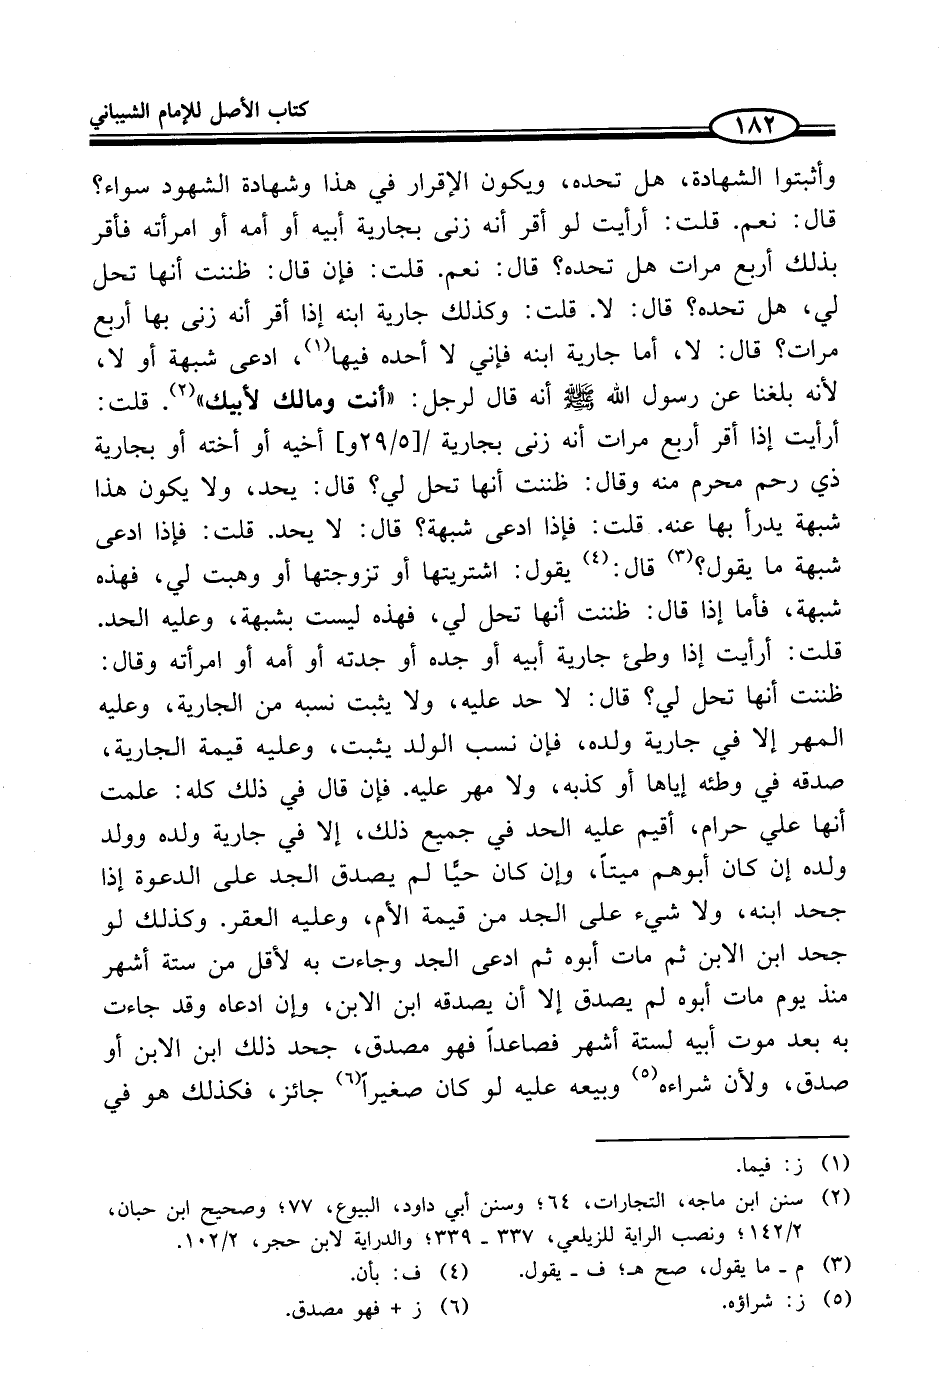 كتاب الأصل للإمام الشيباني
١٨٢
وأثبتوا الشهادة، هل تحده، ويكون الإقرار في هذا وشهادة الشهود سواء؟
قال: نعم. قلت: أرأيت لو أقر أنه زنى بجارية أبيه أو أمه أو امرأته فأقر
بذلك أربع مرات هل تحده؟ قال: نعم. قلت: فإن قال: ظننت أنها تحل
لي، هل تحده؟ قال: لا. قلت: وكذلك جارية ابنه إذا أقر أنه زنى بها أربع
مرات؟ قال: لا، أما جارية ابنه فإني لا أحده فيها(١)، ادعى شبهة أو لا،
لأنه بلغنا عن رسول الله ﷺ أنه قال لرجل: «أنت ومالك لأبيك»(٢). قلت:
أرأيت إذا أقر أربع مرات أنه زنى بجارية /[٢٩/٥و] أخيه أو أخته أو بجارية
ذي رحم محرم منه وقال: ظننت أنها تحل لي؟ قال: يحد، ولا يكون هذا
شبهة يدرأ بها عنه. قلت: فإذا ادعى شبهة؟ قال: لا يحد. قلت: فإذا ادعى
شبهة ما يقول؟(٣) قال:(٤) يقول: اشتريتها أو تزوجتها أو وهبت لي، فهذه
شبهة، فأما إذا قال: ظننت أنها تحل لي، فهذه ليست بشبهة، وعليه الحد.
قلت: أرأيت إذا وطئ جارية أبيه أو جده أو جدته أو أمه أو امرأته وقال:
ظننت أنها تحل لي؟ قال: لا حد عليه، ولا يثبت نسبه من الجارية، وعليه
المهر إلا في جارية ولده، فإن نسب الولد يثبت، وعليه قيمة الجارية،
صدقه في وطئه إياها أو كذبه، ولا مهر عليه. فإن قال في ذلك كله: علمت
أنها علي حرام، أقيم عليه الحد في جميع ذلك، إلا في جارية ولده وولد
ولده إن كان أبوهم ميتاً، وإن كان حيًّا لم يصدق الجد على الدعوة إذا
جحد ابنه، ولا شيء على الجد من قيمة الأم، وعليه العقر. وكذلك لو
جحد ابن الابن ثم مات أبوه ثم ادعى الجد وجاءت به لأقل من ستة أشهر
منذ يوم مات أبوه لم يصدق إلا أن يصدقه ابن الابن، وإن ادعاه وقد جاءت
به بعد موت أبيه لستة أشهر فصاعداً فهو مصدق، جحد ذلك ابن الابن أو
صدق، ولأن شراءه(٥) وبيعه عليه لو كان صغيراً(٦) جائز، فكذلك هو في
(١) ز: فيما.
(٢) سنن ابن ماجه، التجارات، ٦٤؛ وسنن أبي داود، البيوع، ٧٧؛ وصحيح ابن حبان،
١٤٢/٢؛ ونصب الراية للزيلعي، ٣٣٧ ـ ٣٣٩؛ والدراية لابن حجر، ١٠٢/٢.
(٣) م ـ ما يقول، صح هـ؛ ف ـ يقول. (٤) ف: بأن.
(٥) ز: شراؤه. (٦) ز + فهو مصدق.